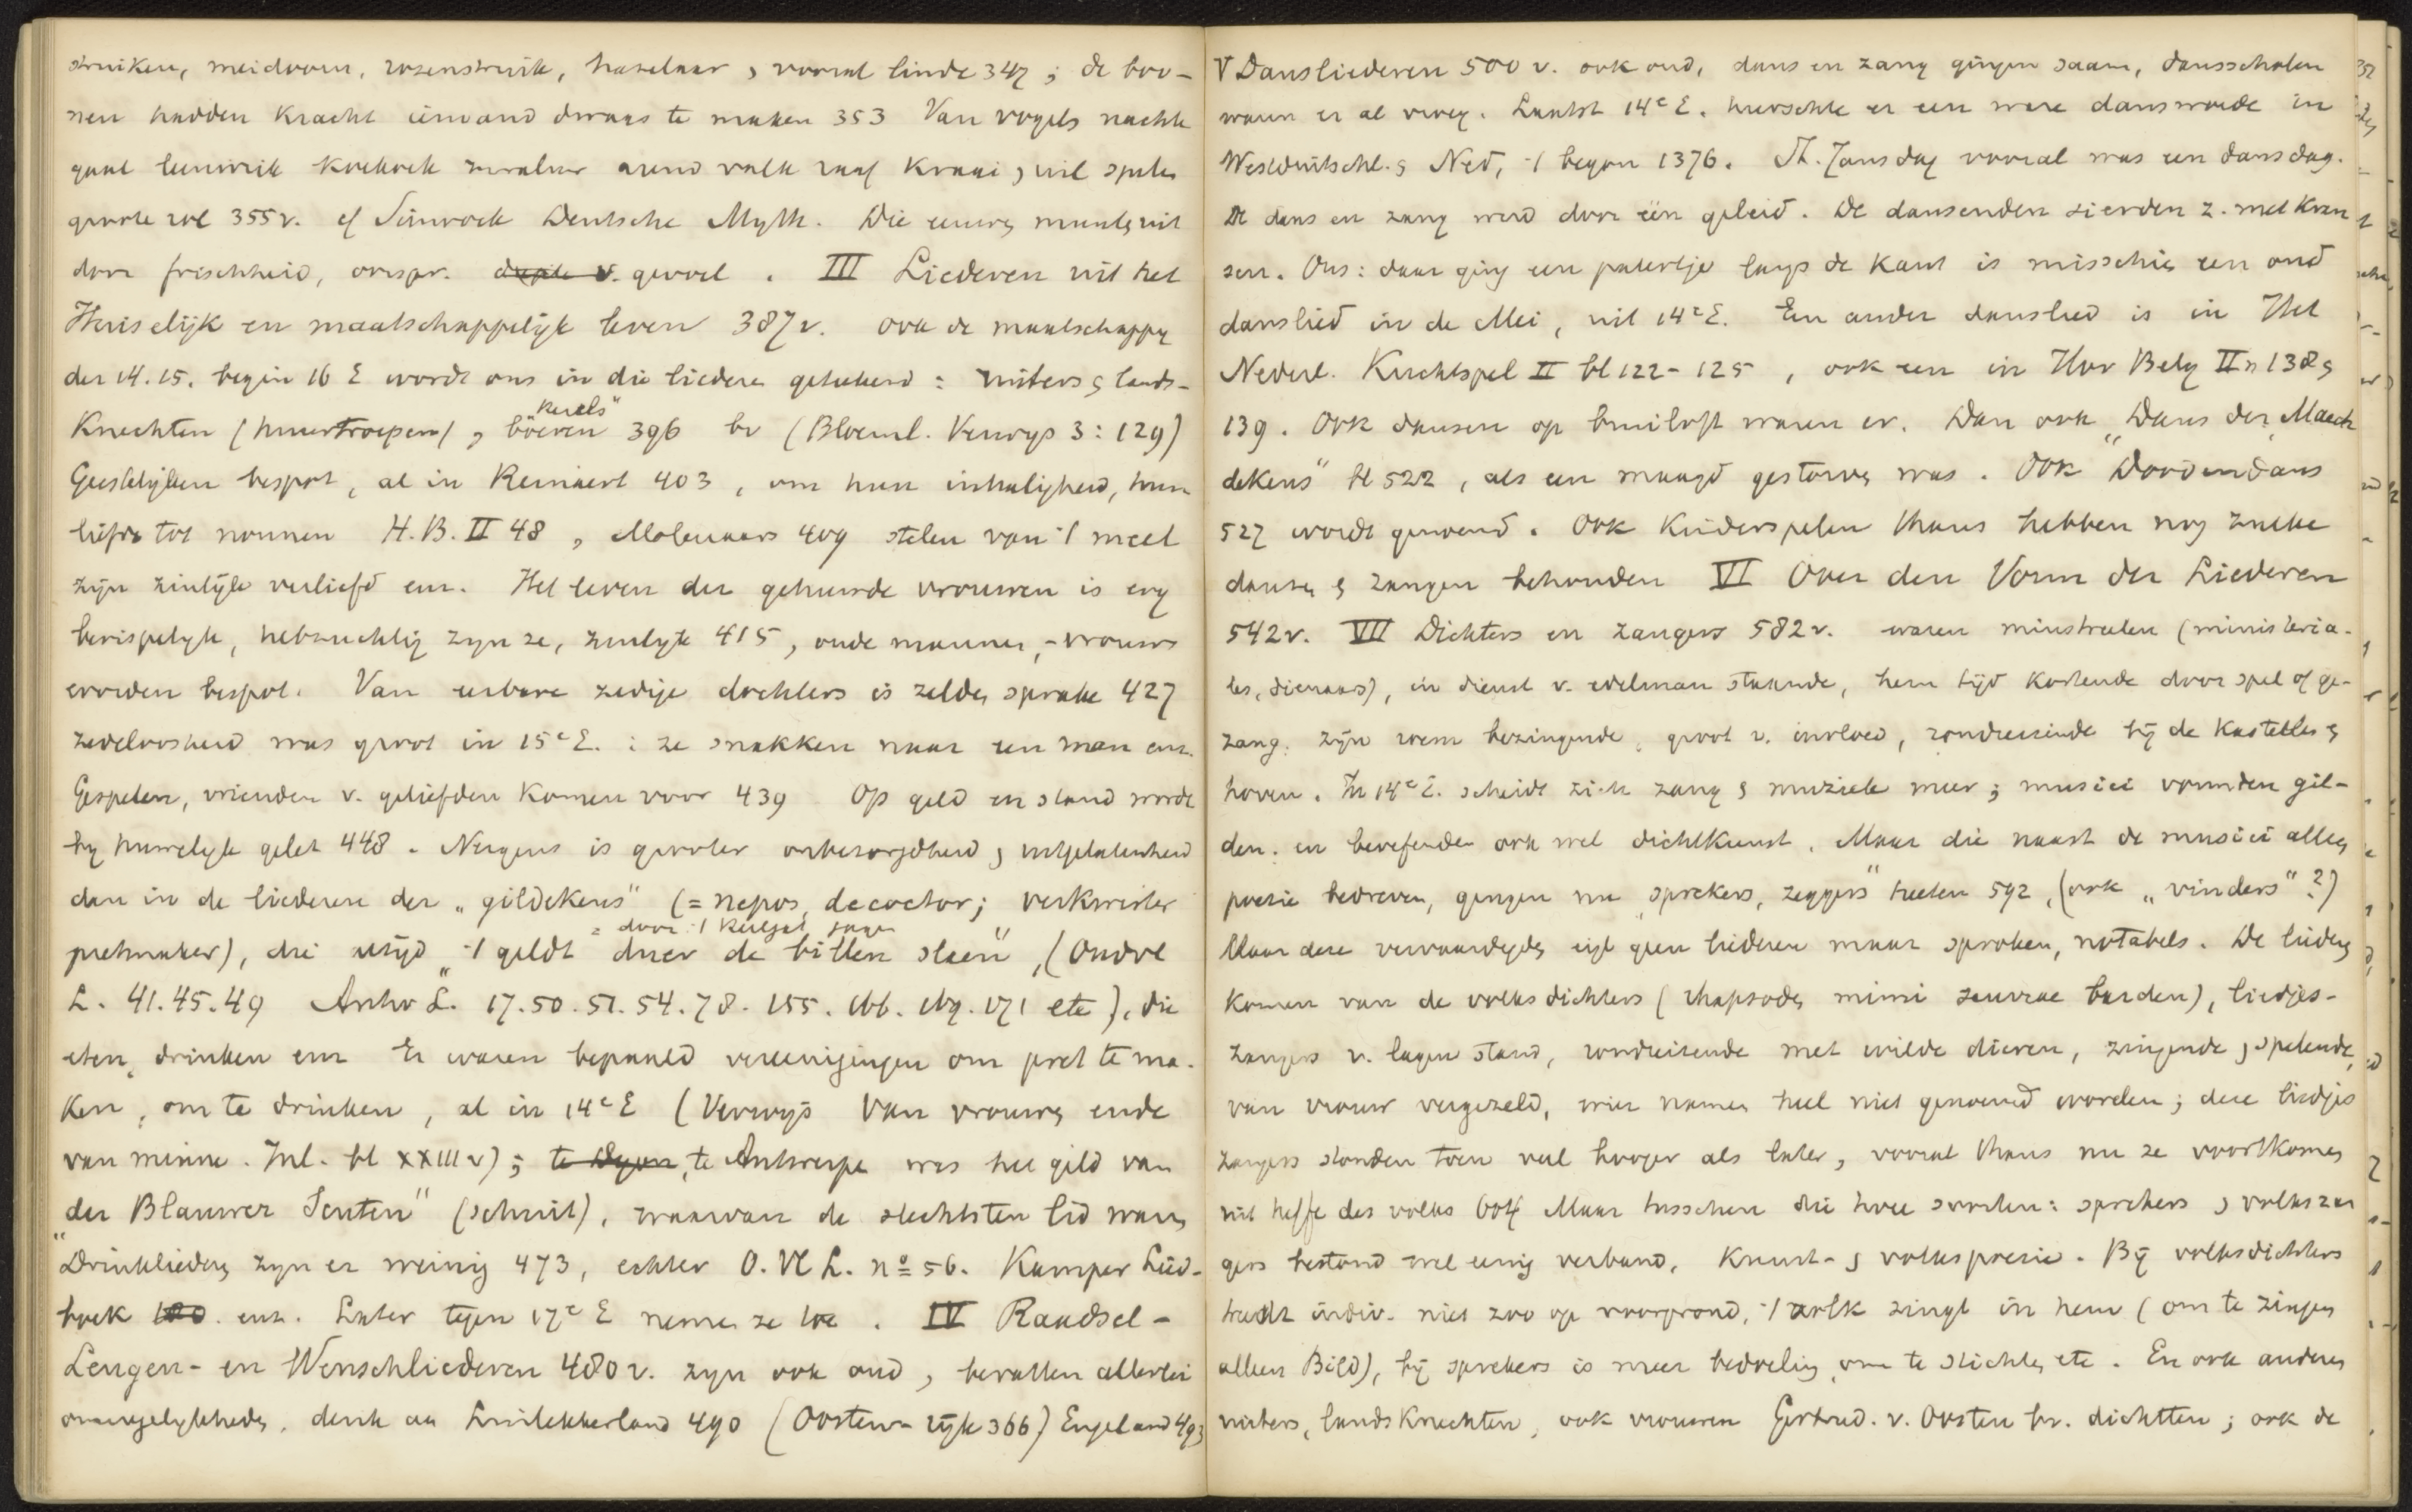 struiken, meidoorn, rozenstruik, hazelaar, vooral linde 347; de boo-
nen hadden kracht iemand dwaas te maken 353 Van vogels nachte
gaal leeuwrik koekoek zwaluw arend valk raaf kraai, uil spelen
groote rol 355v. cf Simrock Deutsche Myth. Die munt uit
door frischheid, oorspr. gevoel. III Liederen uit het
Huiselijk en maatschappelijk leven 387v. ook de maatschappy
der 14. 15. begin 16 E wordt ons in die liedere getekend: ruiters & lands-
knechten (huurtroepen), boeren "kerels" 396 bv (Bloeml. Verwijs 3:129)
Geestelijken bespot, al in Reinaert 403, om hun inhaligheid, hun
liefde tot nonnen H.B. II 48, Molenaars 409 stelen van 't meel
zijn zinlijk verliefd enz. Het leven der gehuwde vrouwen is erg
berispelyk, hebzuchtig zyn ze, zinlyk 415, oude mannen, -vrouwen
worden bespot. Van eerbare zedige dochters is zelden sprake 427
zedeloosheid was groot in 15e E.: ze snakken naar een man enz.
Gespelen, vrienden v. geliefden komen voor 439 Op geld en stand wordt
by huwelyk gelet 448. Nergens is grooter onbezorgdheid, uitgelatenheid
dan in de liederen der „gildekens" (= nepos, decoctor; verkwister
= door 't keelgat jagen
pretmaker), die altijd „'t geldt duer de billen slaen", (Oudvl
L. 41. 45. 49 Antw L. 17. 50. 51. 54. 78. 155. 166. 169. 171 etc), die
eten, drinken enz Er waren bepaald vereenigingen om pret te ma-
ken, om te drinken, al in 14e E (Verwijs Van vrouwen ende
van minne. Inl. bl XXIII v); te Antwerpe was het gild van
der Blauwer Scuten" (schuit), waarvan de slechtsten lid waren
Drinkliederen zyn er weinig 473, echter O. Vl L. no 56. Kamper Lied-
boek enz. Later tegen 17e E nemen ze toe. IV Raadsel-
Leugen- en Wenschliederen 480v. zyn ook oud, bevatten allerlei
onmogelykheden, denk aa Luilekkerland 490 (Oosten-rijk 366) Engeland 493
V Dansliederen 500 v. ook oud, dans en zang gingen saam, dansscholen
waren er al vroeg. Laatst 14e E. heerschte er een ware danswoede in
Westduitschl. & Ned, 't begon 1376. St. Jansdag vooral was een dansdag.
De dans en zang werd door één geleid. De dansenden sierden z. met kran
sen. Ons: daar ging een patertje langs de kant is misschien een oud
danslied in de Mei, uit 14e E. Een ander danslied is in Het
Nederl. Kluchtspel II bl 122-125, ook een in Hor Belg II n 138 &
139. Ook dansen op bruiloft waren er. Dan ook „Dans der Maech
dekens" bl 522, als een maagd gestorven was. Ook Doodendans
527 wordt genoemd. Ook kinderspelen thans hebben nog zulke
dansen & zangen behouden VI Over den Vorm der Liederen
542v. VII Dichters en Zangers 582v. waren minstreelen (ministeria-
les, dienaars), in dienst v. edelman staande, hem tijd kortende door spel of ge-
zang, zijn roem bezingende, groot v. invloed, rondreizende bij de kasteelen &
hoven. In 14e E. scheidt zich zang & muziek meer; musici vormden gil-
den, en beoefenden ook wel dichtkunst. Maar die naast de musici alleen
poezie bedreven, gingen nu „sprekers, zeggers" heeten 592, (ook „vinders"?)
Maar deze vervaardigden eigl geen liederen maar sproken, notabels. De liederen
komen van de volksdichters (rhapsoden mimi barden), liedjes-
zangers v. lagen stand, rondreizende met wilde dieren, zingende, spelende,
van vrouw vergezeld, wier namen heel niet genoemd worden; deze liedjes
zangers stonden toen veel hooger als later, vooral thans nu ze voortkomen
uit heffe des volks 604 Maar tusschen die twee soorten: sprekers, volkszan
gers bestond wel eenig verband, kunst- & volkspoezie. Bij volksdichters
treedt indiv. niet zoo op voorgrond, 't volk zingt in hem (om te zingen
alleen Bild), bij sprekers is meer bedoeling om te stichten etc. En ook anderen
ruiters, landsknechten, ook vrouwen Gertrud. v. Oosten bv. dichtten; ook de